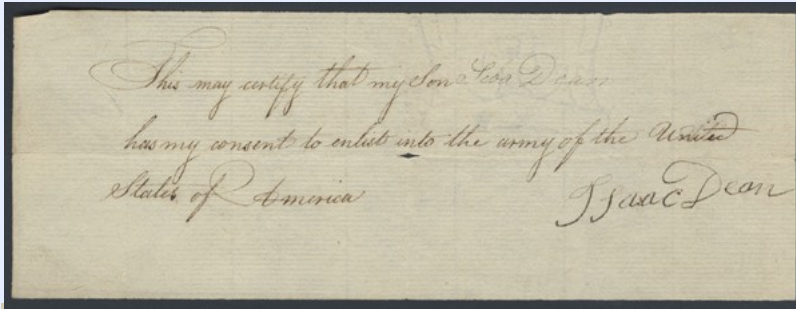 This may certify that my Son Dean
has my consent to enlist into the army of the United
States of America
Isaac Dean